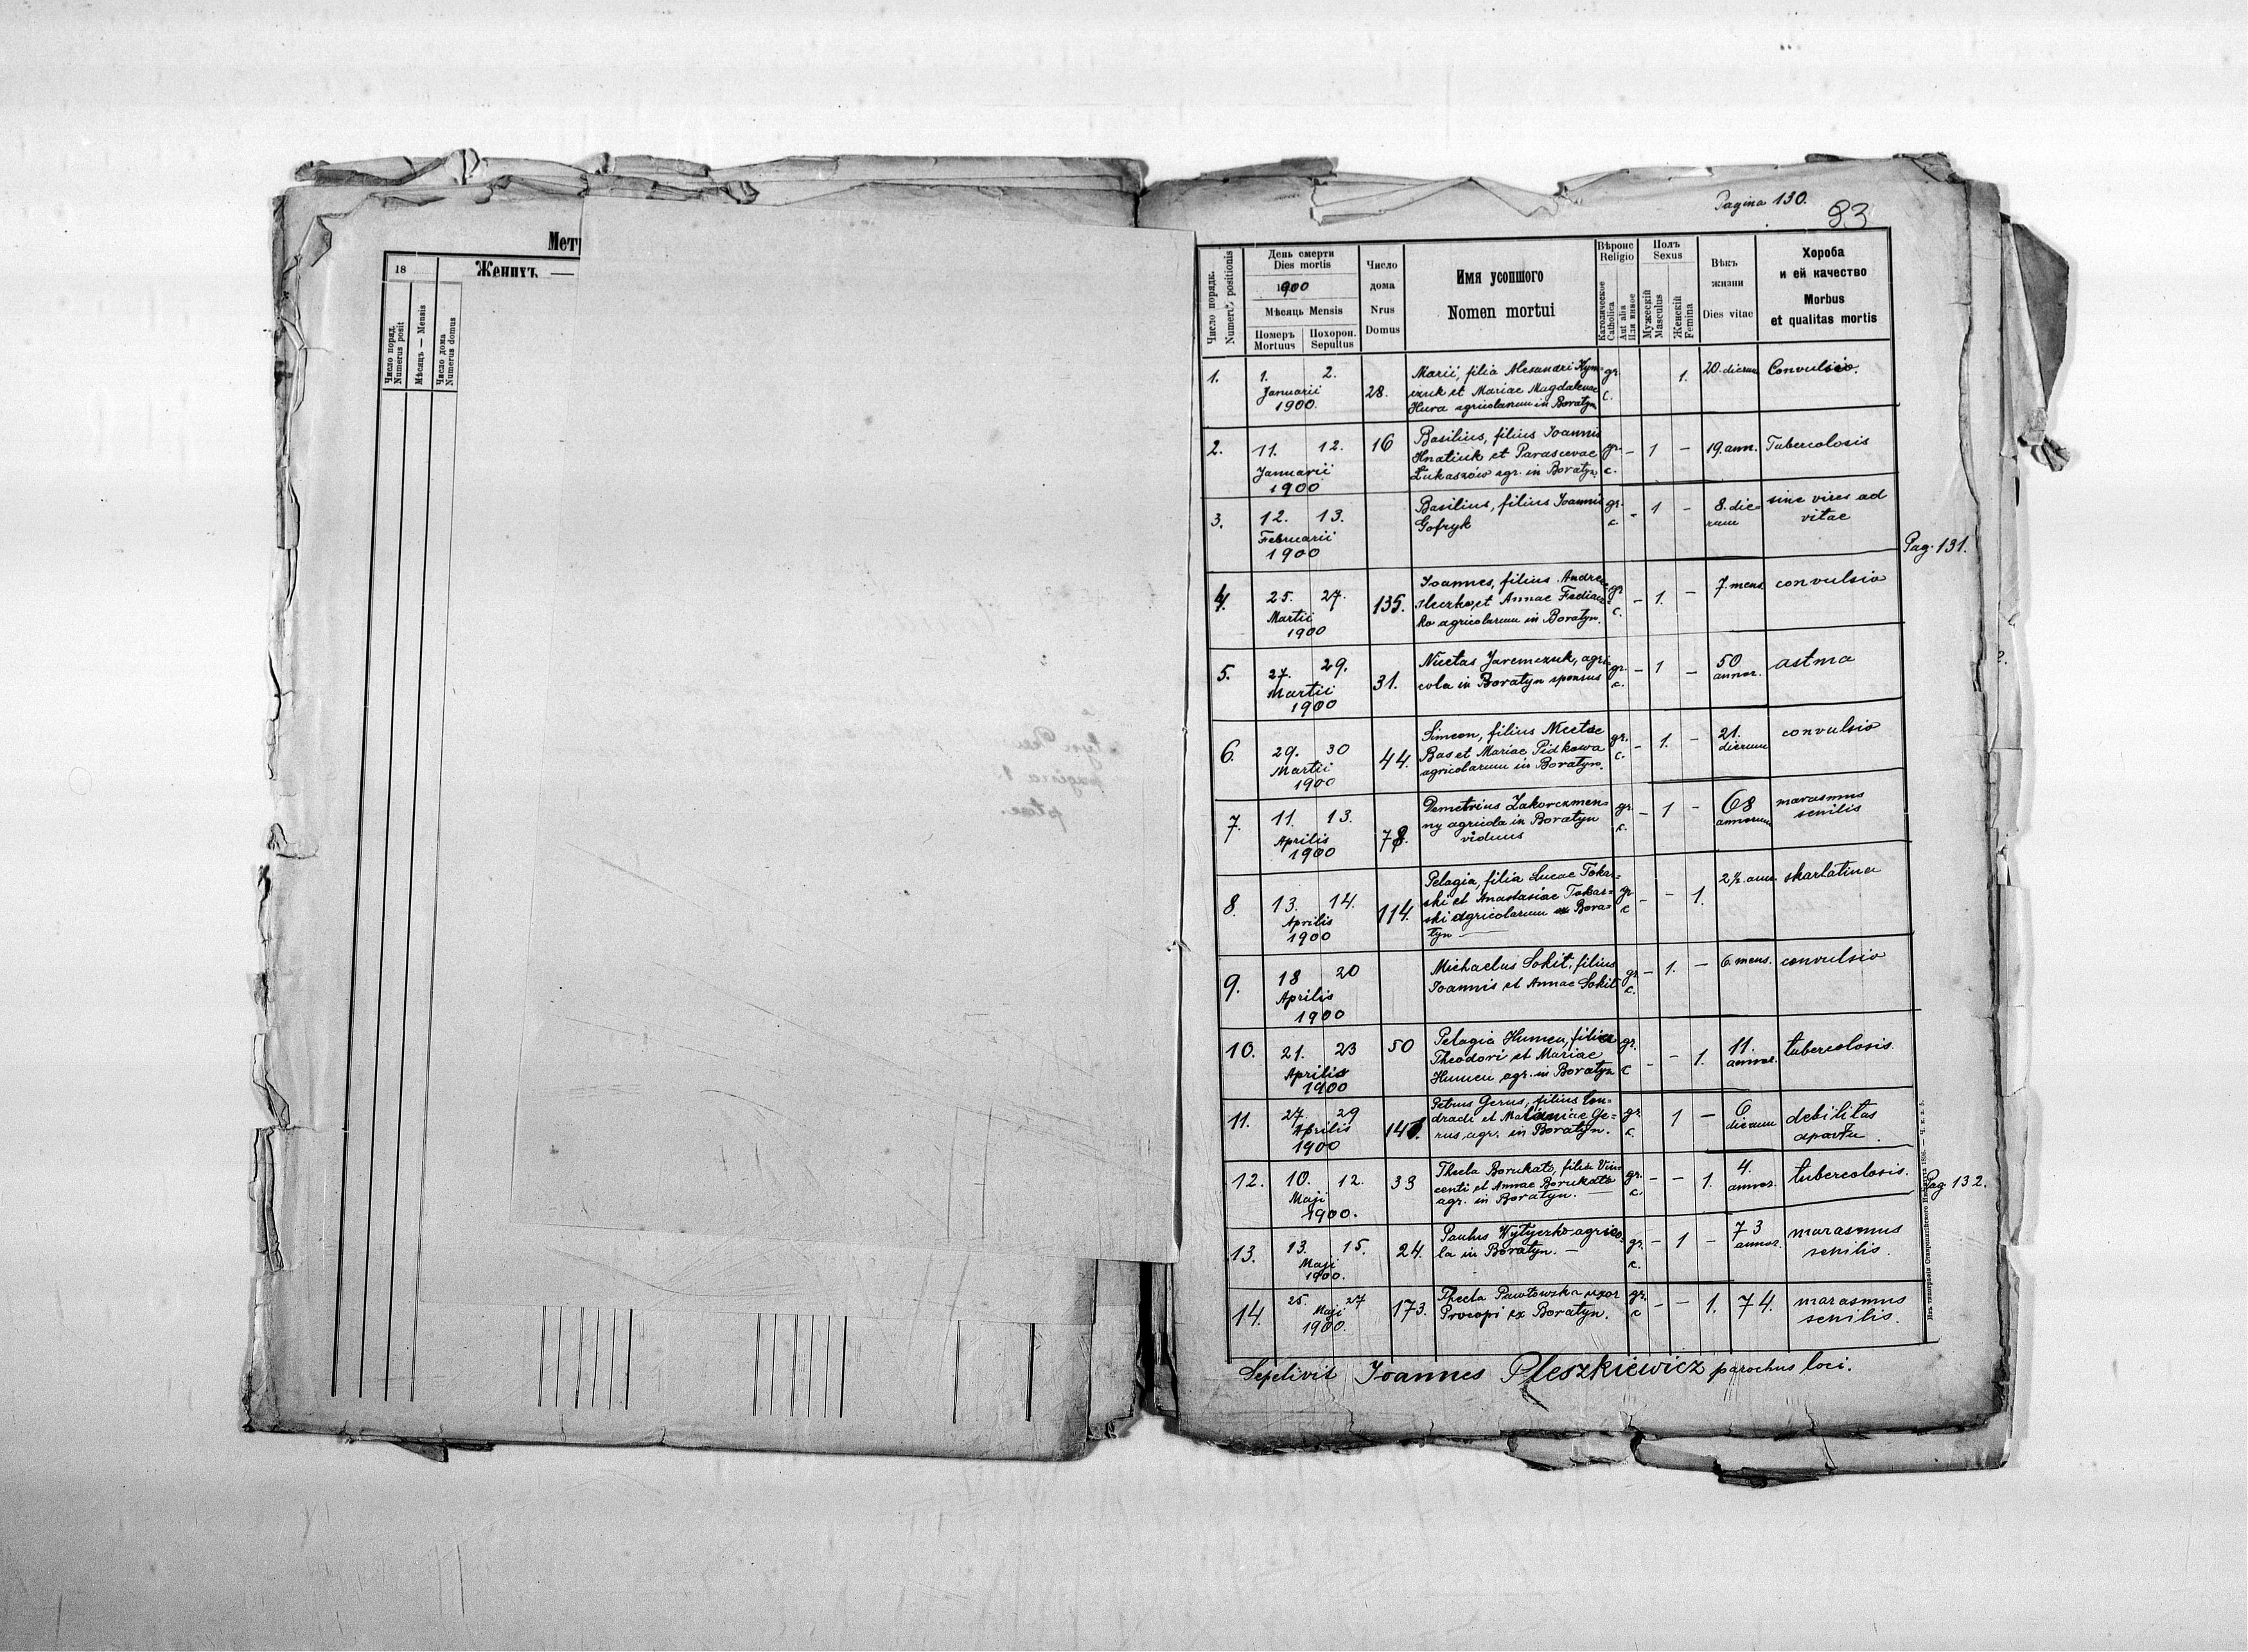 Мет
18
Женихъ —
Число поряд.
Numerus posit
Мѣсяць — Mensis
Число дома
Numerus domus
Pagina 130.
83
Число порядк.
Numerus positionis
День смерти
Dies mortis
1900
Мѣсяць Mensis
Померъ
Mortuus
Похорон.
Sepultus
Число
дома
Nrus
Domus
Имя усопшого
Nomen mortui
Вѣроис
Religio
Католическое
Catholica
Aut alia
Или инное
Полъ
Sexus
Мужескій
Masculus
Женскій
Femina
Вѣкъ
жизни
Dies vitae
Хороба
и ей качество
Morbus
et qualitas mortis
1.
1. 2.
Januarii
1900.
28.
Marii, filia Alexandri Kym=
czuk et Mariae Magdalenae
Hura agricolarum in Boratyn
gr.
c.
1.
20. dierum
Convulsio.
2.
11. 12.
Januarii
1900
16
Basilius, filius Joannis
Hnatiuk et Parascevae
Łukaszów agr. in Boratyn
gr.
c.
– 1 –
19. ann.
Tubercolosis
3.
12. 13.
Februarii
1900
Basilius, filius Joannis
Gofryk
gr.
c.
– 1 –
8. die=
rum
sine vires ad
vitae
Pag. 131.
4.
25. 27.
Martii
1900
135.
Joannes, filius Andreae
et Annae
ko agricolarum in Boratyn.
gr.
c.
– 1. –
7. mens
convulsio
5.
27. 29.
Martii
1900
31.
Nicetas Jaremczuk, agri
cola in Boratyn sponsus
gr.
c.
– 1 –
50
annor.
astma
6.
29. 30
Martii
1900
44.
Simeon, filius Nicetae
Bas et Mariae Pidkowa
agricolarum in Boratyn.
gr.
c.
– 1. –
21.
dierum
convulsio
7.
11. 13.
Aprilis
1900
78.
Demetrius Zakorczmen=
ny agricola in Boratyn
viduus
gr.
c.
– 1 –
68
annorum
marasmus
senilis
8.
13. 14.
Aprilis
1900
114.
Pelagia, filia Lucae Tokar=
ski et Anastasiae Tokar=
ski agricolarum ex Bora=
tyn —
gr.
c
– – 1.
2½ ann
skarlatina
9.
18 20
Aprilis
1900
Michaelus Sokit, filius
Joannis et Annae Sokit
gr.
c.
– 1. –
6. mens.
convulsio
10.
21. 23
Aprilis
1900
50
Pelagia Humen, filia
Theodori et Mariae
Humen agr. in Boratyn
gr.
c
– – 1.
11.
annor.
tubercolosis
11.
27. 29
Aprilis
1900
141.
Petrus Gerus, filius Con=
dradi et Malaniae Ge=
rus, agr. in Boratyn.
gr.
c.
1 –
6
dierum
debilitas
apartu.
12.
10. 12.
Maji
1900.
33
Thecla Borukato, filia Vin=
centi et Annae Borukato
agr. in Boratyn. —
gr.
c.
– – 1.
4.
annor.
tubercolosis.
Pag 132.
13.
13. 15.
Maji
1900.
24.
Paulus Wytyczko agrico=
la in Boratyn. —
gr.
c.
– 1 –
73
annor.
marasmus
senilis.
14.
25. 27
Maji
1900.
173.
Thecla Pawłowska uxor
Procopi ex Boratyn.
gr.
c
– – 1.
74.
marasmus
senilis.
Sepelivit Joannes Pleszkiewicz parochus loci.